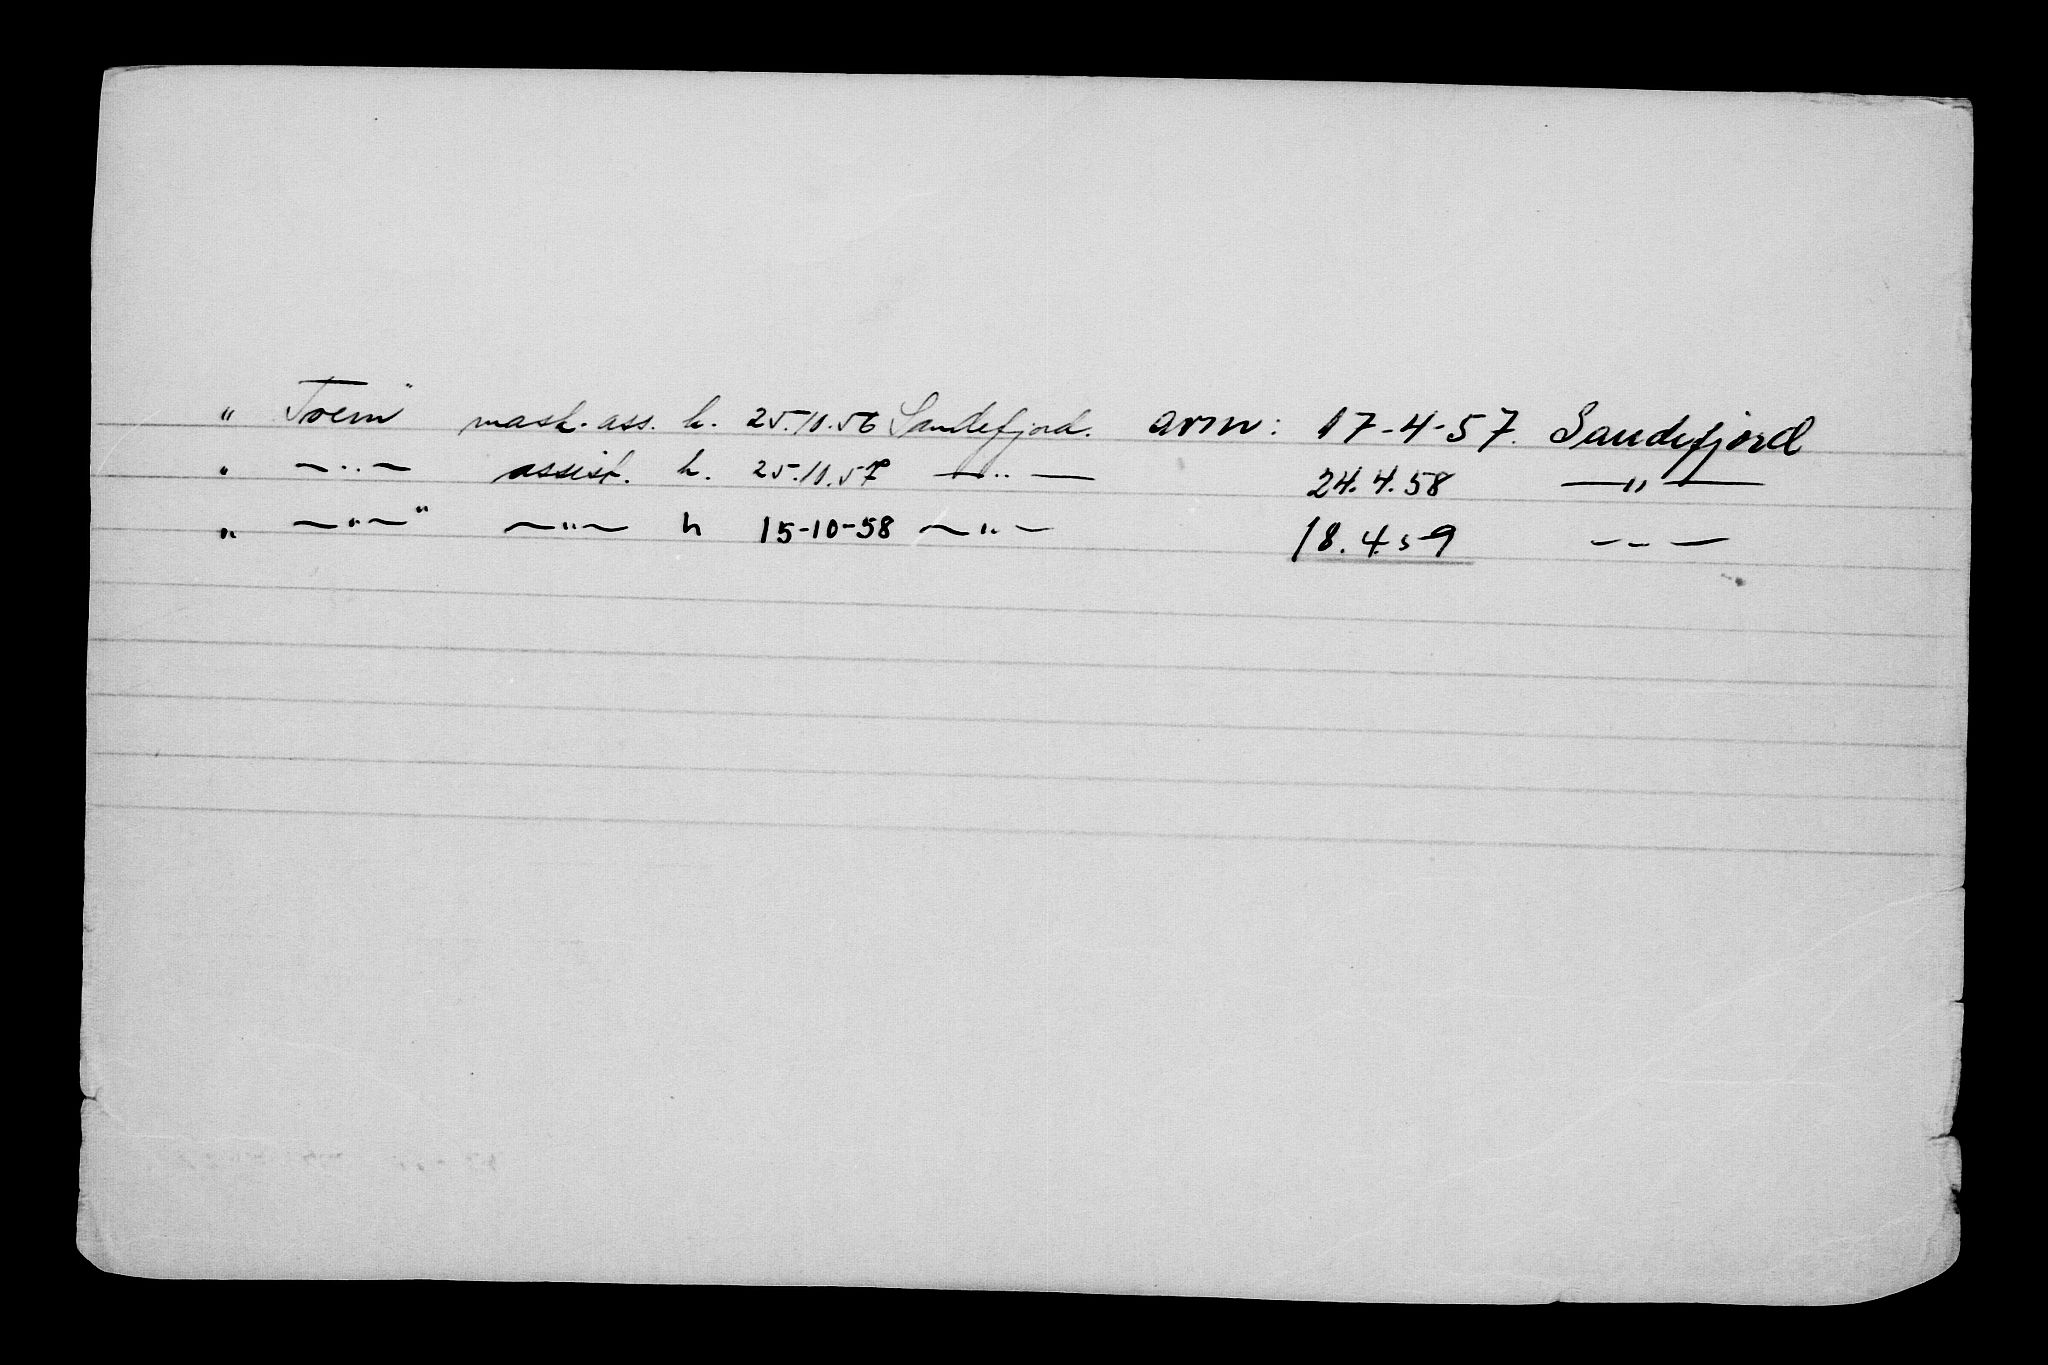 " Tvem" mask. ass. h. 25.10.56 Sandefjord. avm: 17-4-57. Sandefjord
" —..— assist. h. 25.10.57 —..— 24.4.58 —"—
" —"—" —"— h 15-10-58 —"— 18.4.59 – – —